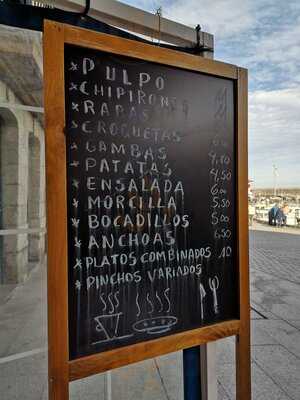 * PULPO
* CHIPIRONES
* RABAS
* CROQUETAS
* GAMBAS
* PATATAS 4.50
* ENSALADA 6.00
* MORCILLA 5.50
* BOCADILLOS 5.00
* ANCHOAS 6.50
* PLATOS COMBINADOS 10
* PINCHOS VARIADOS